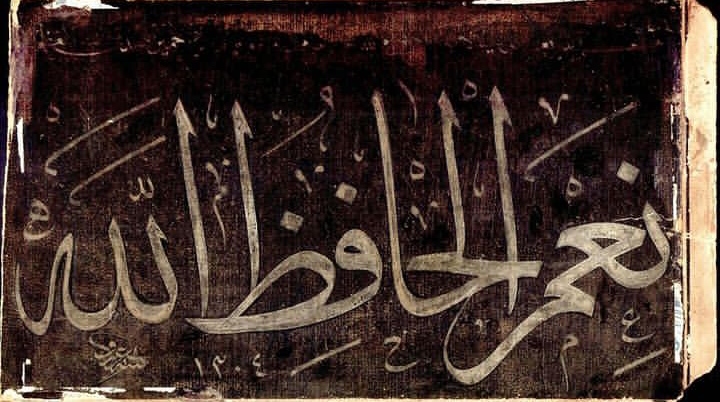 نعم الحافظ الله
١٣٠٤